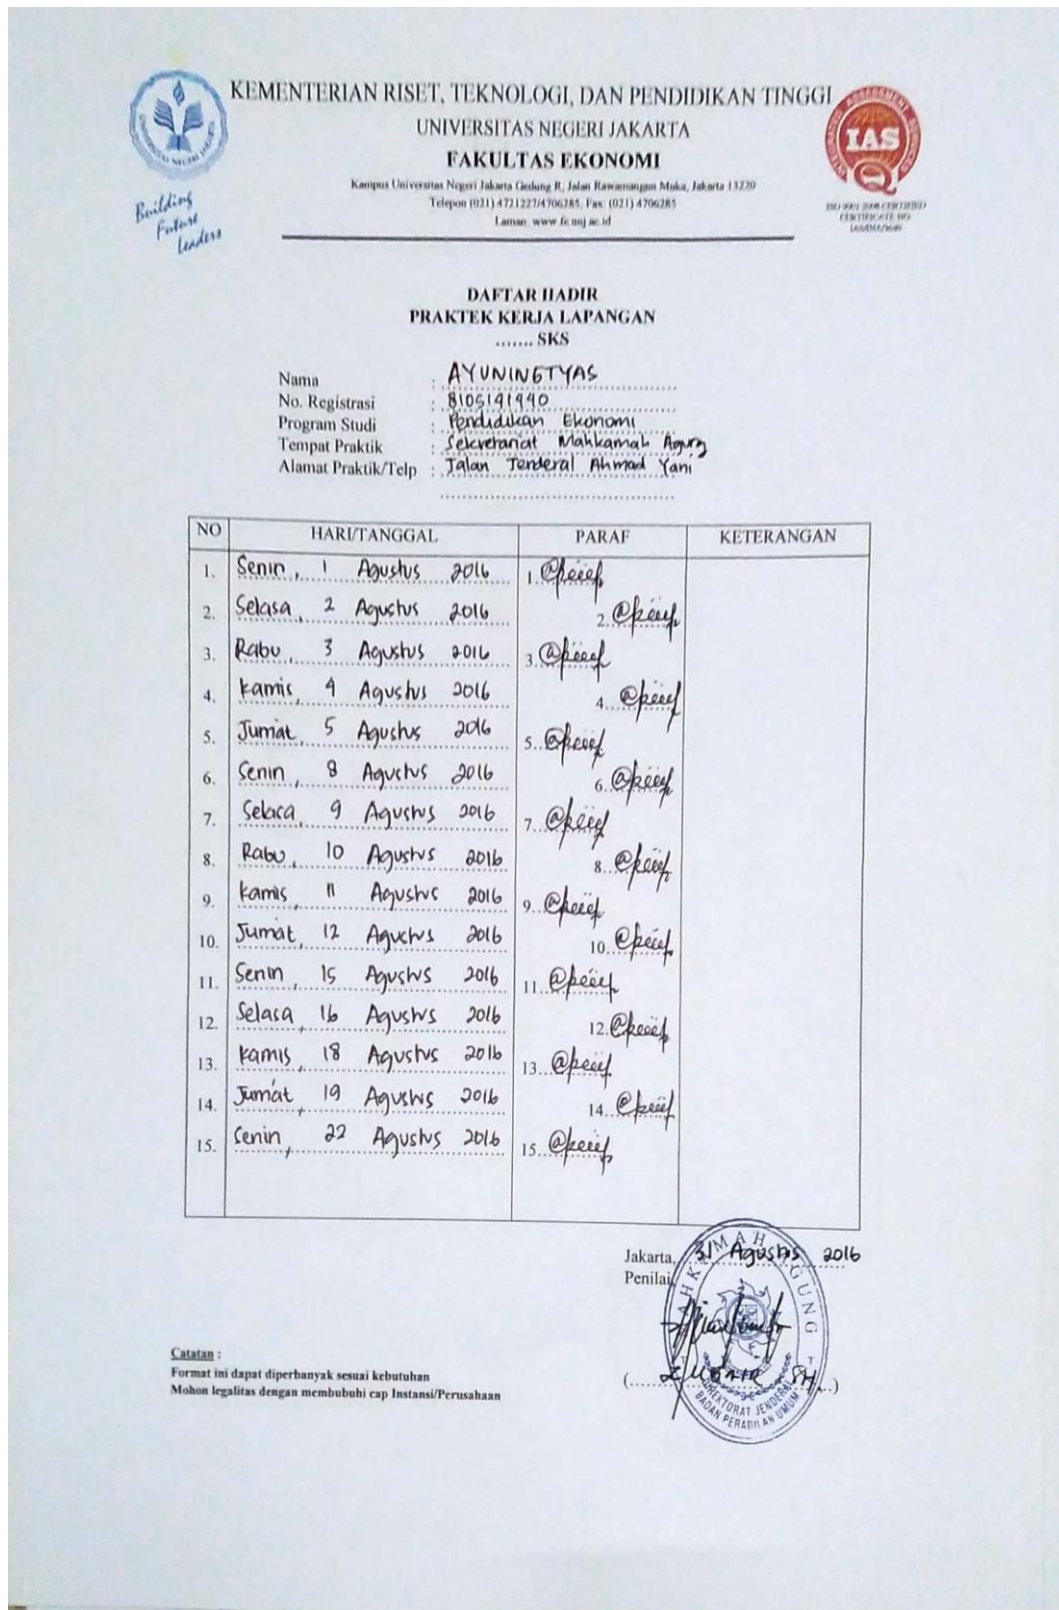 KEMENTERIAN RISET, TEKNOLOGI, DAN PENDIDIKAN TINGGI
UNIVERSITAS NEGERI JAKARTA
FAKULTAS EKONOMI
Kampus Universitas Negeri Jakarta Gedung R, Jalan Rawamangun Muka, Jakarta 13220
Telepon (021) 4721227/4706285, Fax: (021) 4706285
Laman: www.fe.unj.ac.id
UNIVERSITAS NEGERI JAKARTA
Building
Future
Leaders
IAS
ISO 9001:2008 CERTIFIED
CERTIFICATE NO
DAFTAR HADIR
PRAKTEK KERJA LAPANGAN
....... SKS
Nama : AYUNINGTYAS
No. Registrasi : 8105141440
Program Studi : Pendidikan Ekonomi
Tempat Praktik : Sekretariat Mahkamah Agung
Alamat Praktik/Telp : Jalan Jenderal Ahmad Yani
NO HARI/TANGGAL PARAF KETERANGAN
1. Senin, 1 Agustus 2016 1.
2. Selasa, 2 Agustus 2016 2.
3. Rabu, 3 Agustus 2016 3.
4. Kamis, 4 Agustus 2016 4.
5. Jumat, 5 Agustus 2016 5.
6. Senin, 8 Agustus 2016 6.
7. Selasa, 9 Agustus 2016 7.
8. Rabu, 10 Agustus 2016 8.
9. Kamis, 11 Agustus 2016 9.
10. Jumat, 12 Agustus 2016 10.
11. Senin, 15 Agustus 2016 11.
12. Selasa, 16 Agustus 2016 12.
13. Kamis, 18 Agustus 2016 13.
14. Jum'at, 19 Agustus 2016 14.
15. Senin, 22 Agustus 2016 15.
Jakarta, 31 Agustus 2016
Penilai,
MAHKAMAH AGUNG
DIREKTORAT JENDERAL
BADAN PERADILAN UMUM
(ZUBAIR SH)
Catatan :
Format ini dapat diperbanyak sesuai kebutuhan
Mohon legalitas dengan membubuhi cap Instansi/Perusahaan